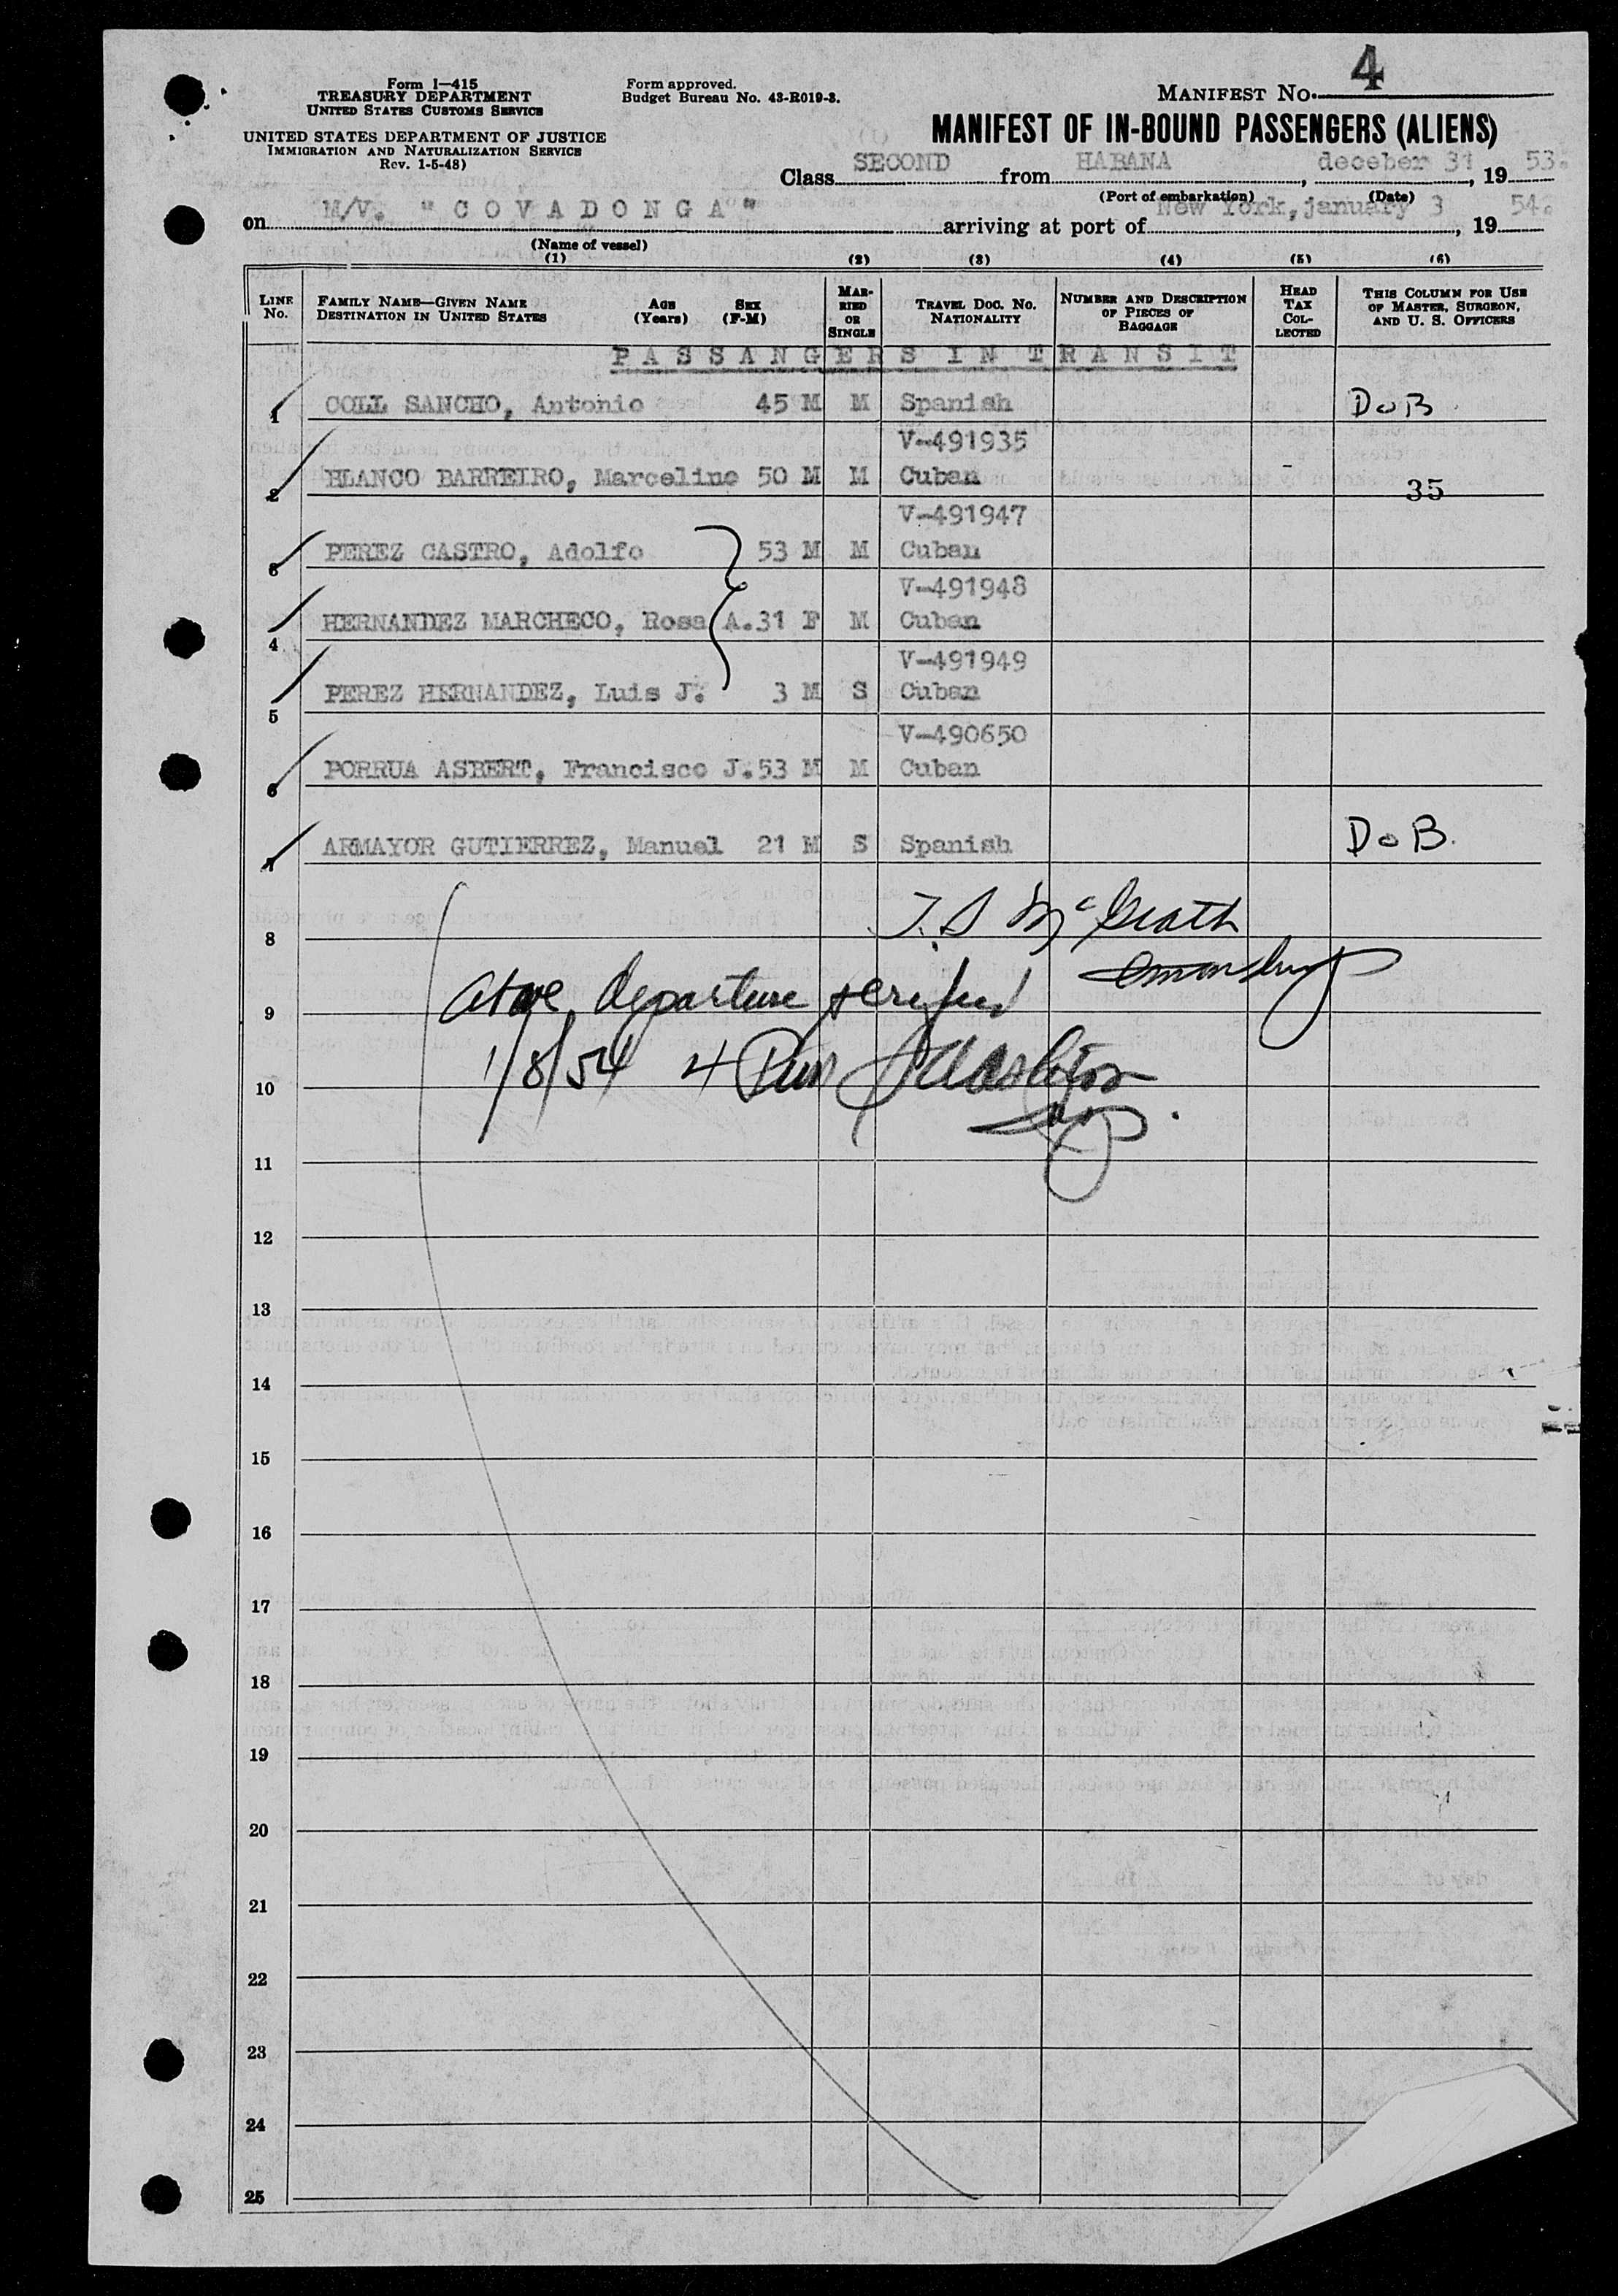 4
Form I-415
TREASURY DEPARTMENT
UNITED STATES CUSTOMS SERVICE
Form approved.
Budget Bureau No. 43-R019-3.
MANIFEST No.
UNITED STATES DEPARTMENT OF JUSTICE
IMMIGRATION AND NATURALIZATION SERVICE
Rev. 1-5-48)
MANIFEST OF IN-BOUND PASSENGERS (ALIENS)
Class SECOND from HABANA, deceber 31, 19 53.
(Port of embarkation) (Date)
on M/V. "COVADONGA" arriving at port of New York, january 3, 19 54.
(Name of vessel)
(1) (2) (3) (4) (5) (6)
LINE No. FAMILY NAME—GIVEN NAME DESTINATION IN UNITED STATES AGE (Years) SEX (F-M) MARRIED OR SINGLE TRAVEL DOC. NO. NATIONALITY NUMBER AND DESCRIPTION OF PIECES OF BAGGAGE HEAD TAX COLLECTED THIS COLUMN FOR USE OF MASTER, SURGEON, AND U. S. OFFICERS
PASSANGERS IN TRANSIT
1 COLL SANCHO, Antonio 45 M M Spanish DoB
V-491935
2 BLANCO BARREIRO, Marcelino 50 M M Cuban 35
V-491947
3 PEREZ CASTRO, Adolfo 53 M M Cuban
V-491948
4 HERNANDEZ MARCHECO, Rosa A. 31 F M Cuban
V-491949
5 PEREZ HERNANDEZ, Luis J. 3 M S Cuban
V-490650
6 PORRUA ASBERT, Francisco J. 53 M M Cuban
7 ARMAYOR GUTIERREZ, Manuel 21 M S Spanish DoB.
T. S McGrath
8
above departure verified
9
1/8/54 4 Pm
10
11
12
13
14
15
16
17
18
19
20
21
22
23
24
25